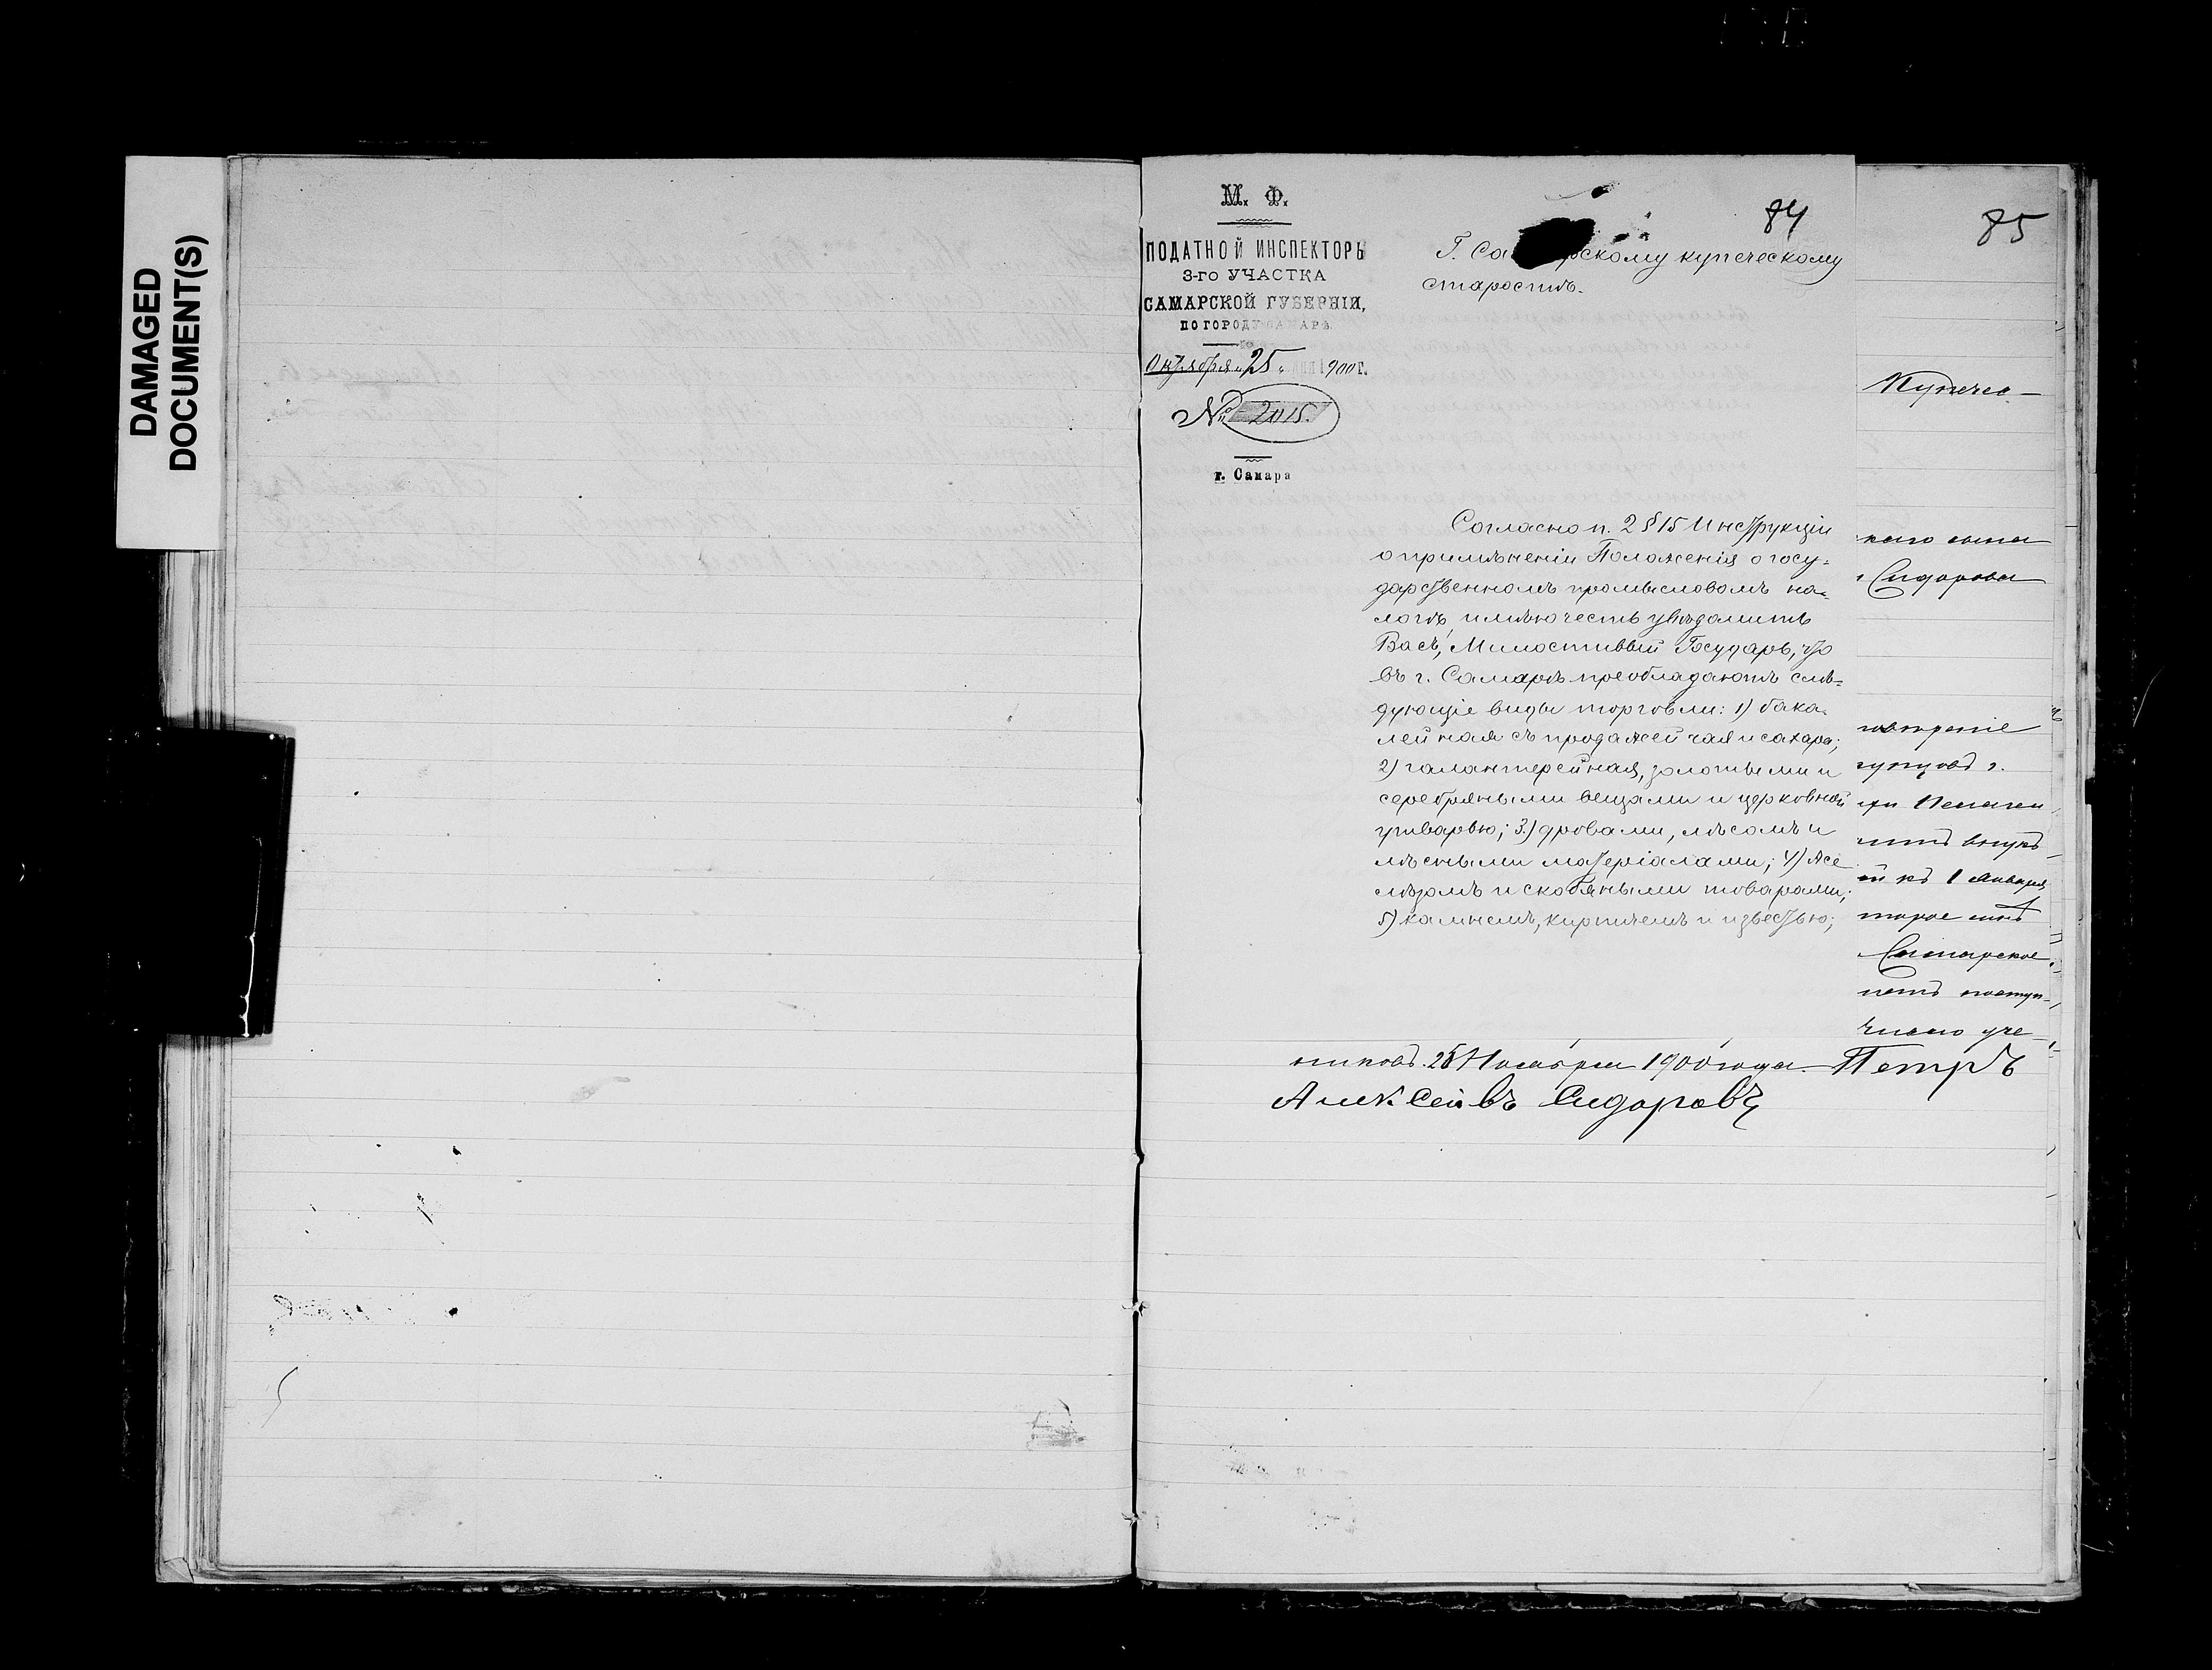 DAMAGED
DOCUMENT(S)
М. Ф.
ПОДАТНОЙ ИНСПЕКТОРЪ
3-го УЧАСТКА
САМАРСКОЙ ГУБЕРНІИ,
ПО ГОРОДУ САМАРѢ.
Октября „25„ 1900 г.
№ 2015.
г. Самара
84
Г. Са рскому купеческому
старостѣ.
Согласно п. 2 § 15 Инструкціи
о примѣненіи Положенія о госу-
дарственномъ промысловомъ на-
логѣ, имѣю честь увѣдомить
Васъ, Милостивый Государь, что
въ г. Самарѣ преобладаютъ слѣ-
дующіе виды торговли: 1) бака-
лейная съ продажей чая и сахара;
2) галантерейная, золотыми и
серебряными вещами и церковной
утварью; 3) дровами, лѣсомъ и
лѣсными матеріалами; 4) же
лѣзомъ и скобяными товарами;
5) камнемъ, кирпичемъ и известью;
85
Купечес-
каго сына
Сидорова
внукъ
къ 1 Января
Самарское
поступ-
число уче-
никовъ. 28 Ноября 1900 года. Петръ
Алексеивъ Сидоровъ